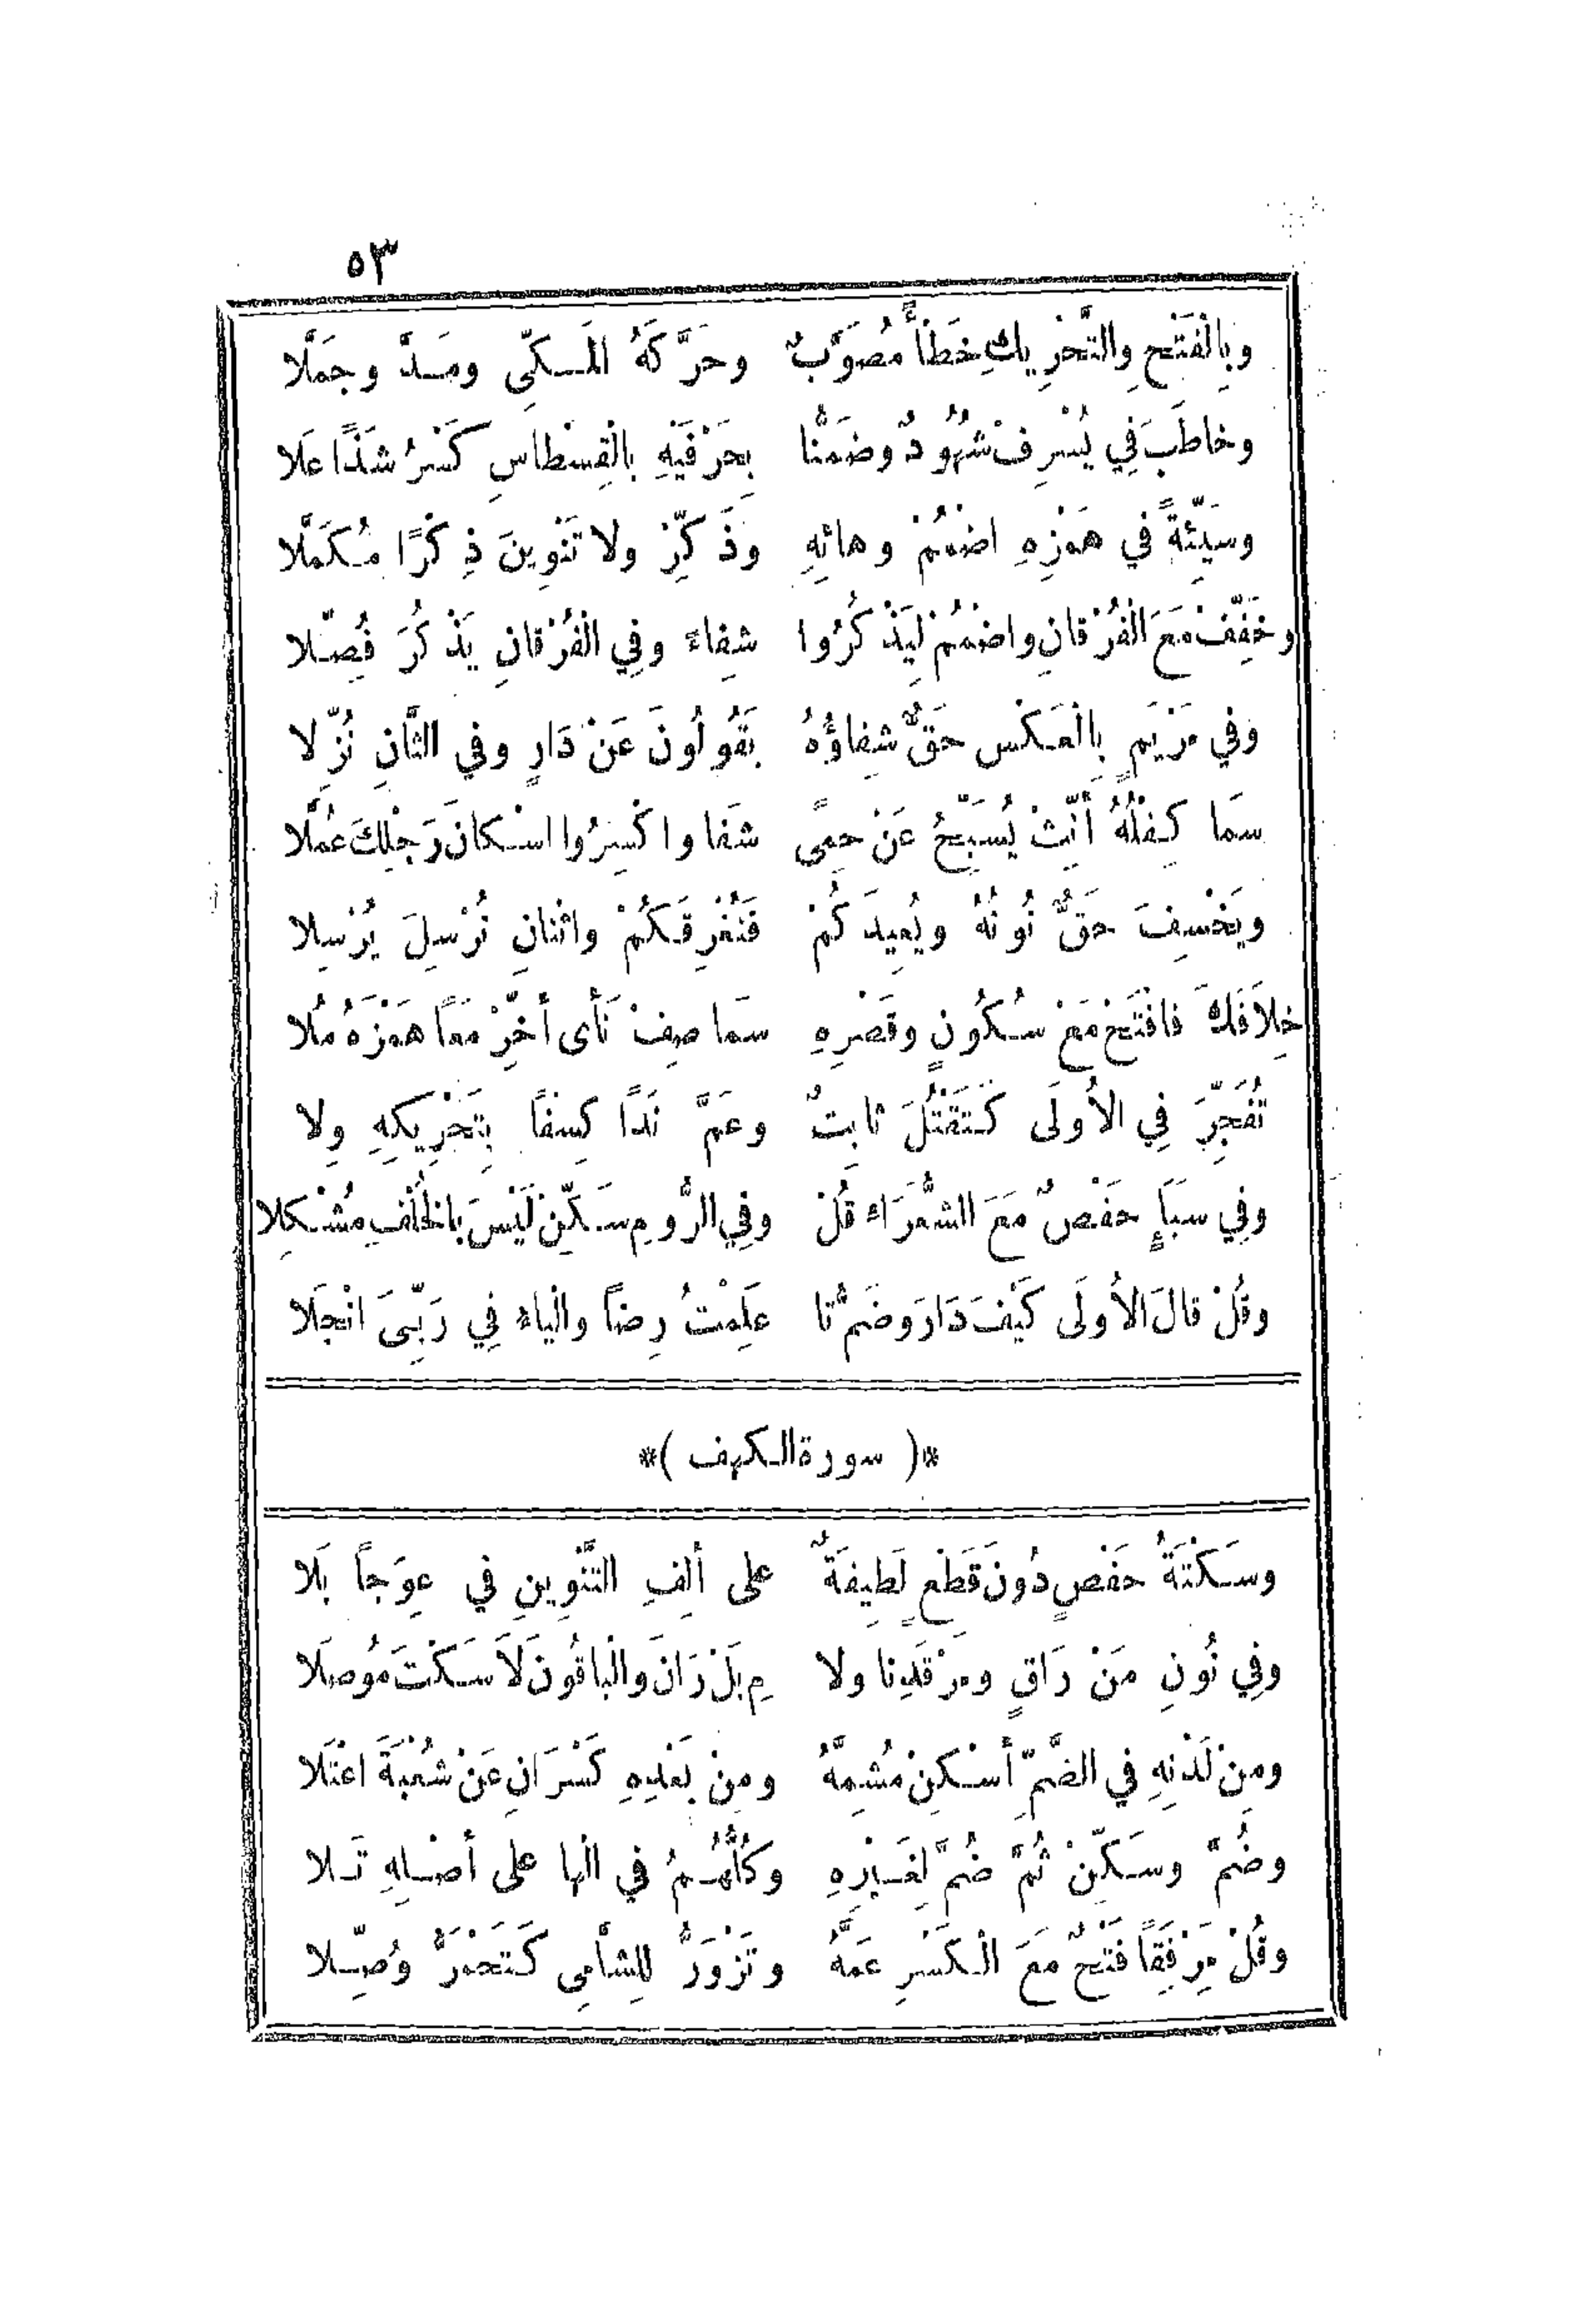 ٥٣
وبِالْفَتْحِ والتَّحْرِيكِ خَطَأً مُصَوَّبٌ وحَرَّكَهُ المَكِّي ومَدَّ وجَمَّلا
وخاطَبَ فِي يُسْرِفْ شُهُودٌ وضَمُّنا بِحَرْفَيْهِ بالْقِسْطاسِ كَسْرُ شَذًا عَلا
وسَيِّئَةً في هَمْزِهِ اضْمُمْ وهائِهِ وَذَكِّرْ ولا تَنْوِينَ ذِكْرًا مُكَمَّلا
وخَفِّفْ مَعَ الْفُرْقانِ واضْمُمْ لِيَذْكُرُوا شِفاءً وفِي الْفُرْقانِ يَذْكُرَ فُصِّلا
وفي مَرْيَمٍ بِالْعَكْسِ حَقٌّ شِفاؤُهُ يَقُولُونَ عَنْ دَارٍ وفي الثَّانِ نُزِّلا
سَما كِفْلُهُ أَنِّثْ يُسَبِّحُ عَنْ حِمًى شَفا واكْسِرُوا اسْكانَ رَجْلِكَ عُمَّلا
ويَخْسِفَ حَقٌّ نُونُهُ ويُعِيدَكُمْ فَنُغْرِقَكُمْ واثْنانِ نُرْسِلَ يُرْسِلا
خِلاَفَكَ فافْتَحْ مَعْ سُكُونٍ وقَصْرِهِ سَما صِفْ نَأى أخِّرْ مَعاً هَمْزَهُ مُلا
تُفَجِّرَ فِي الأُولَى كَتَقْتُلَ ثابِتٌ وعَمَّ نَدًا كِسْفاً بِتَحْرِيكِهِ وِلا
وفِي سَبَأٍ حَفْصٌ مَعَ الشُّعَرَاءِ قُلْ وفِي الرُّومِ سَكِّنْ لَيْسَ بالخُلْفِ مُشْكِلا
وقُلْ قالَ الأُولَى كَيْفَ دَارَ وَضَمُّ تا عَلِمْتُ رِضاً والْياءُ فِي رَبِّىَ انْجَلَا
*( سورة الكهف )*
وسَكْتَةُ حَفْصٍ دُونَ قَطْعٍ لَطِيفَةٌ على ألِفِ التَّنْوِينِ في عِوَجاً بَلا
وفِي نُونِ مَنْ رَاقٍ ومَرْقَدِنا ولا مِ بَلْ رَانَ والْباقُونَ لاَ سَكْتَ مُوصَلَا
ومِنْ لَدْنِهِ في الضَّمِّ أسْكِنْ مُشِمَّهُ ومِنْ بَعْدِهِ كَسْرَانِ عَنْ شُعْبَةَ اعْتَلَا
وضُمَّ وسَكِّنْ ثُمَّ ضُمَّ لِغَيْرِهِ وكُلُّهُمُ في الْها على أصْلِهِ تَلا
وقُلْ مَرْفِقاً فَتْحٌ مَعَ الْكَسْرِ عَمَّهُ وتَزْوَرُّ لِلشَّامِي كَتَحْمَرُّ وُصِّلا